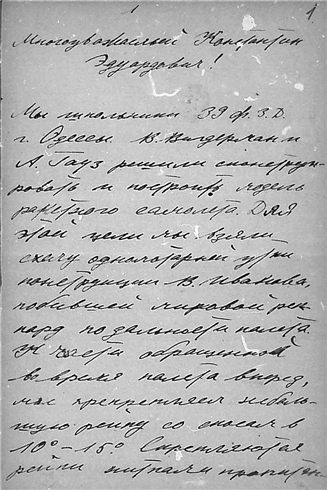 1.
Многоуважаемый Константин
Эдуардович!
Мы школьники 39 ф.З.Д.
г. Одессы В. Вигдерман и
А. Гауз решили сконструи-
ровать и построить модель
ракетного самолета. Для
этой цели мы взяли
схему одномоторной утки
конструкции В. Иванова,
побившей мировой рек-
орд по дальности полета.
К части обращенной
во время полета вперед,
мы прикрепляем неболь-
шую рейку со скосом в
10°-15° Скрепляются
рейки нитками пропитан-